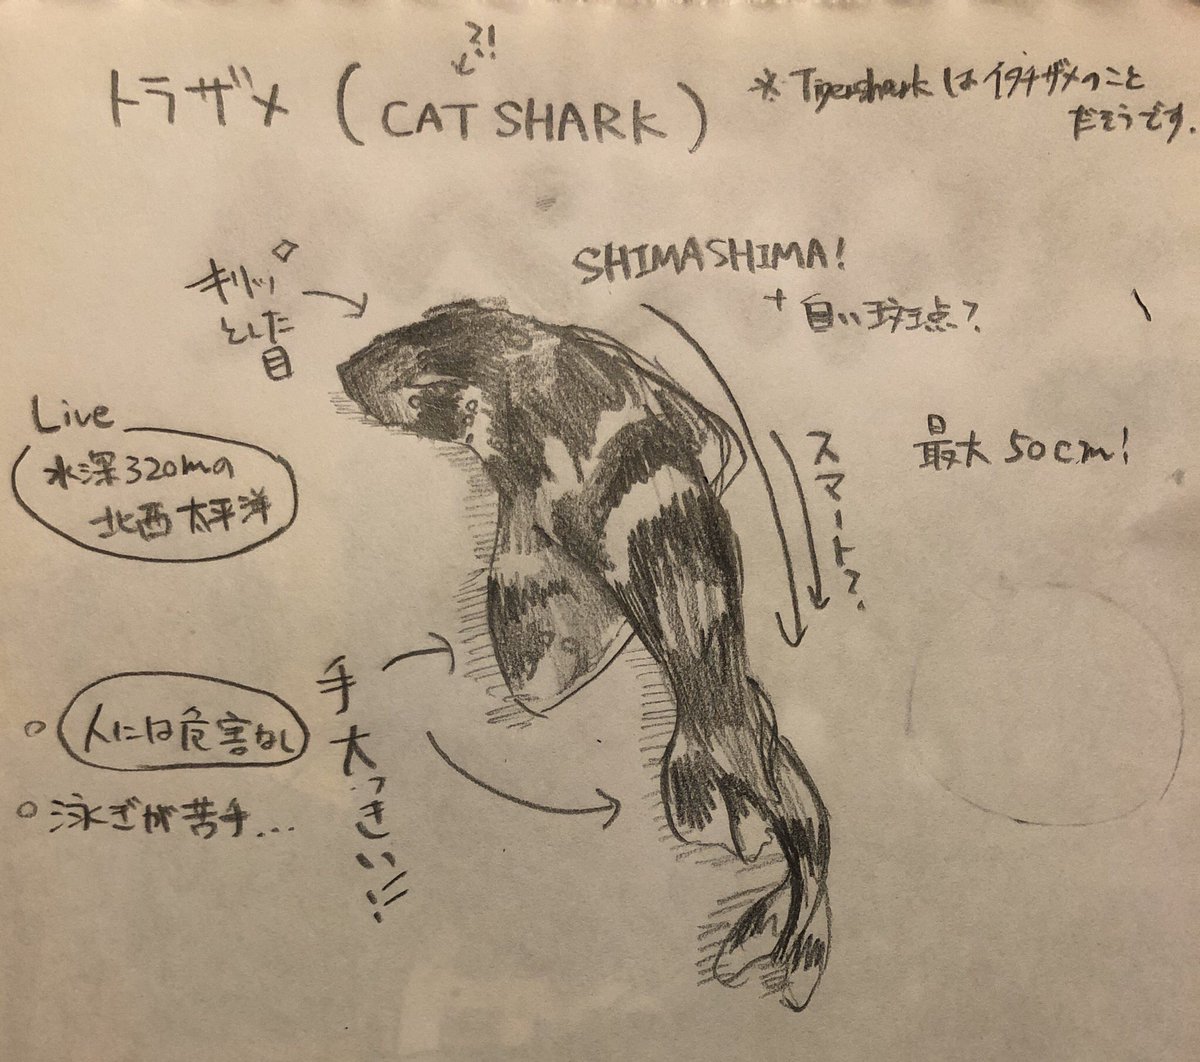 ?!
トラザメ (CAT SHARK)
* Tigershark はイタチザメのこと
だそうです.
キリッ
とした
目
SHIMASHIMA!
+ 白い斑点?
Live
水深320mの
北西太平洋
スマート?
最大 50cm!
手大っきい!!
人には危害なし
泳ぎが苦手...